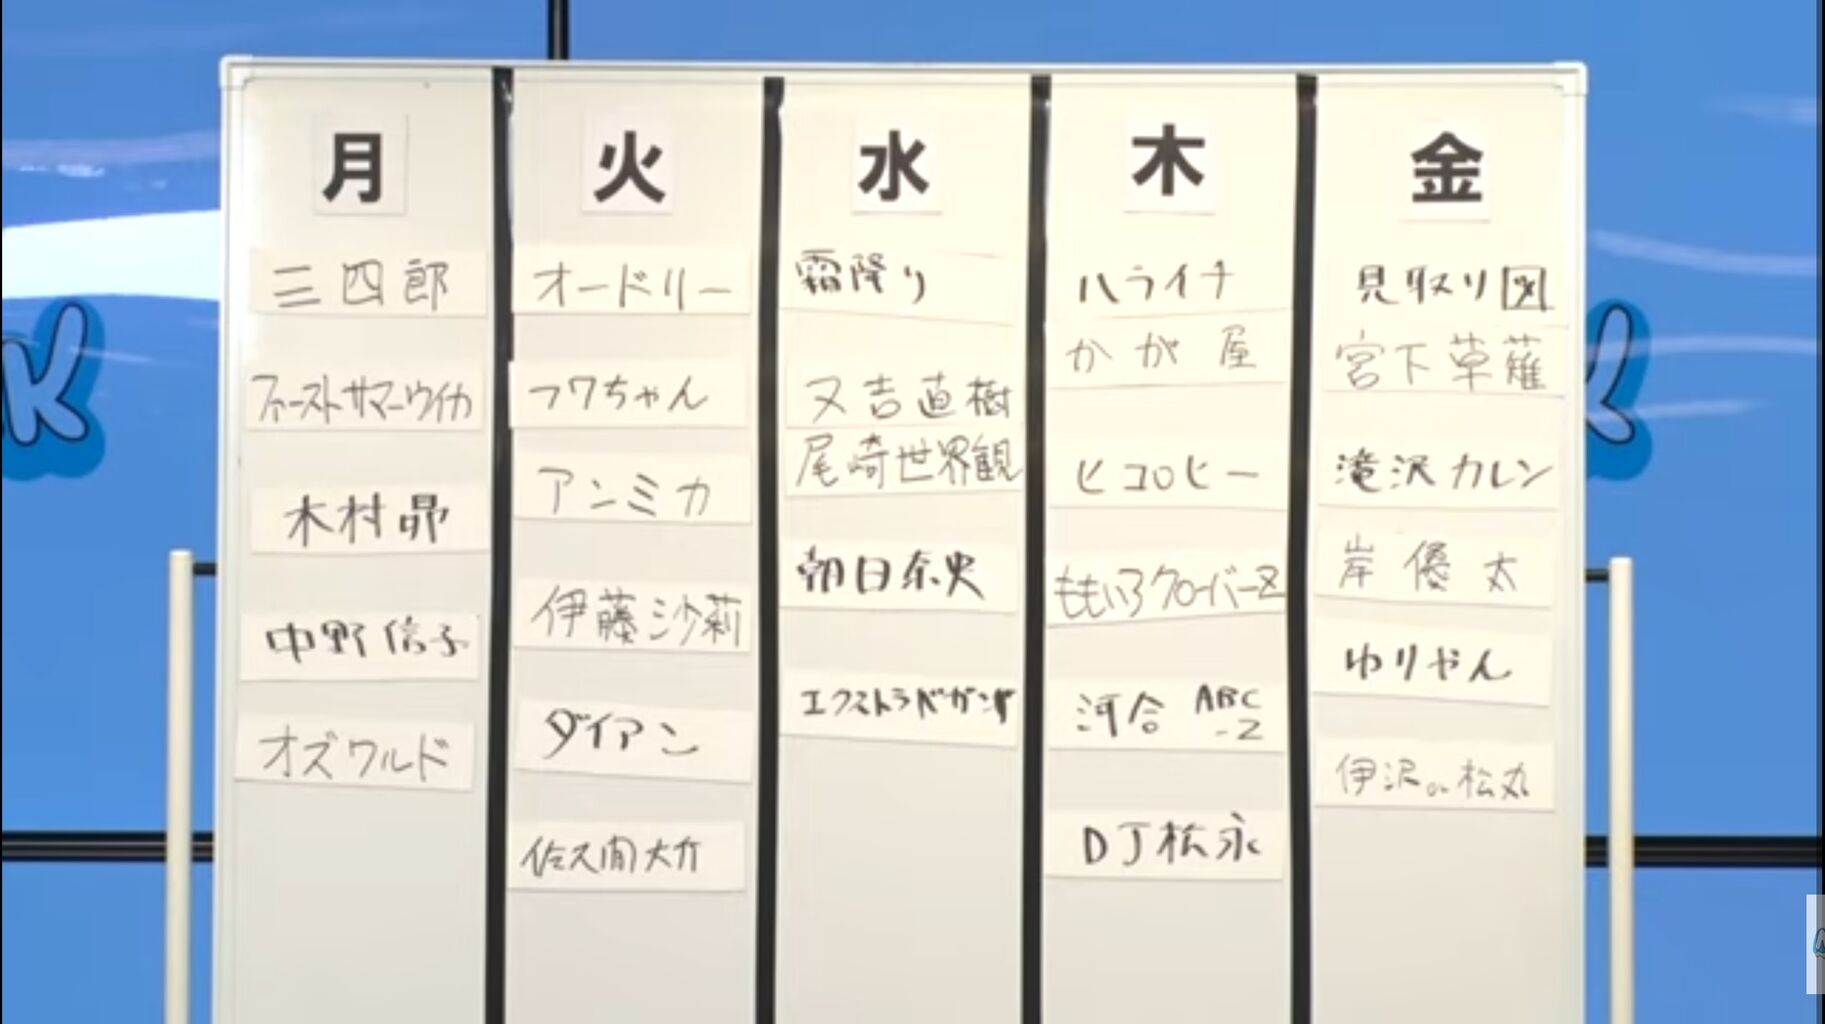 月
三四郎
ファーストサマーウイカ
木村昴
中野信子
オズワルド
火
オードリー
フワちゃん
アンミカ
伊藤沙莉
ダイアン
佐久間大介
水
霜降り
又吉直樹
尾崎世界観
朝日奈央
エクストラバガンザ
木
ハライチ
かが屋
ヒコロヒー
ももいろクローバーZ
河合 ABC
-Z
DJ松永
金
見取り図
宮下草薙
滝沢カレン
岸優太
ゆりやん
伊沢or松丸